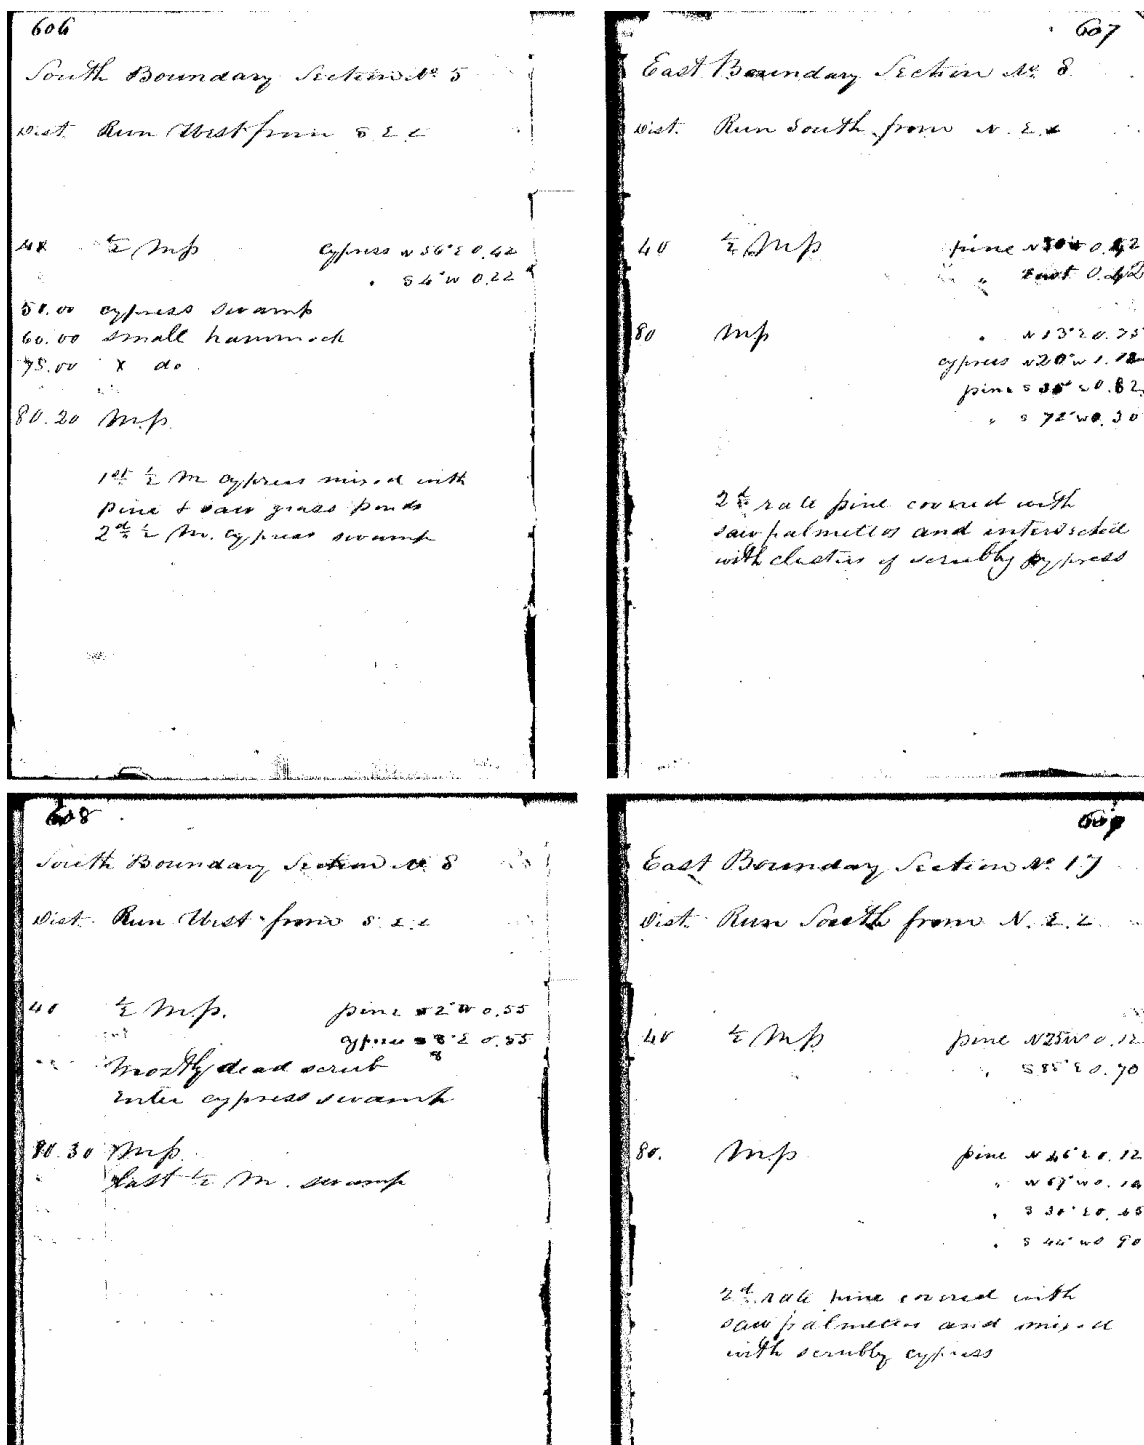 606
South Boundary Section No 5
Dist. Run West from S E C
40 ½ M.P. Cypress N 56° E 0.42
" S 4° W 0.22
50.00 cypress swamp
60.00 small hammock
75.00 X do
80.20 M.P.
1st ½ M cypress mixed with
pine & saw grass ponds
2d ½ M. cypress swamp
607
East Boundary Section No 8
Dist. Run South from N. E.
40 ½ M.P. pine
" East 0.42
80 M.P. " N 13° E 0.75
cypress N 20° W
pine S 0.82
" S 72° W 0.30
2d rate pine covered with
saw palmettos and intersected
with clusters of scrubby cypress
608
South Boundary Section No 8
Dist. Run West from S. E. C
40 ½ M.P. pine 2° W 0.55
cypress E 0.55
Mostly dead scrub
Enter cypress swamp
80.30 M.P.
Last ½ M. swamp
609
East Boundary Section No 17
Dist. Run South from N. E. C
40 ½ M.P. pine N 25 W 0.12
" S 85° E 0.70
80. M.P. pine N 46° E 0.12
" N 67° W 0.
" S 30° E 0.65
" S 44° W 0 90
2d rate pine covered with
saw palmettos and mixed
with scrubby cypress